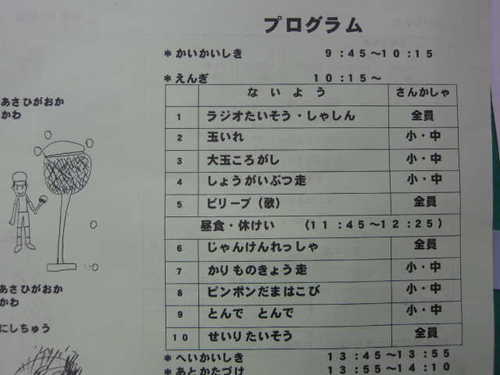 プログラム
＊かいかいしき 9：45～10：15
＊えんぎ 10：15～
ないよう さんかしゃ
1 ラジオたいそう・しゃしん 全員
2 玉いれ 小・中
3 大玉ころがし 小・中
4 しょうがいぶつ走 小・中
5 ビリーブ（歌） 全員
昼食・休けい （11：45～12：25）
6 じゃんけんれっしゃ 全員
7 かりものきょう走 小・中
8 ピンポンだまはこび 小・中
9 とんで とんで 小・中
10 せいりたいそう 全員
＊へいかいしき 13：45～13：55
＊あとかたづけ 13：55～14：10
あさひがおか
かわ
あさひがおか
かわ
にしちゅう